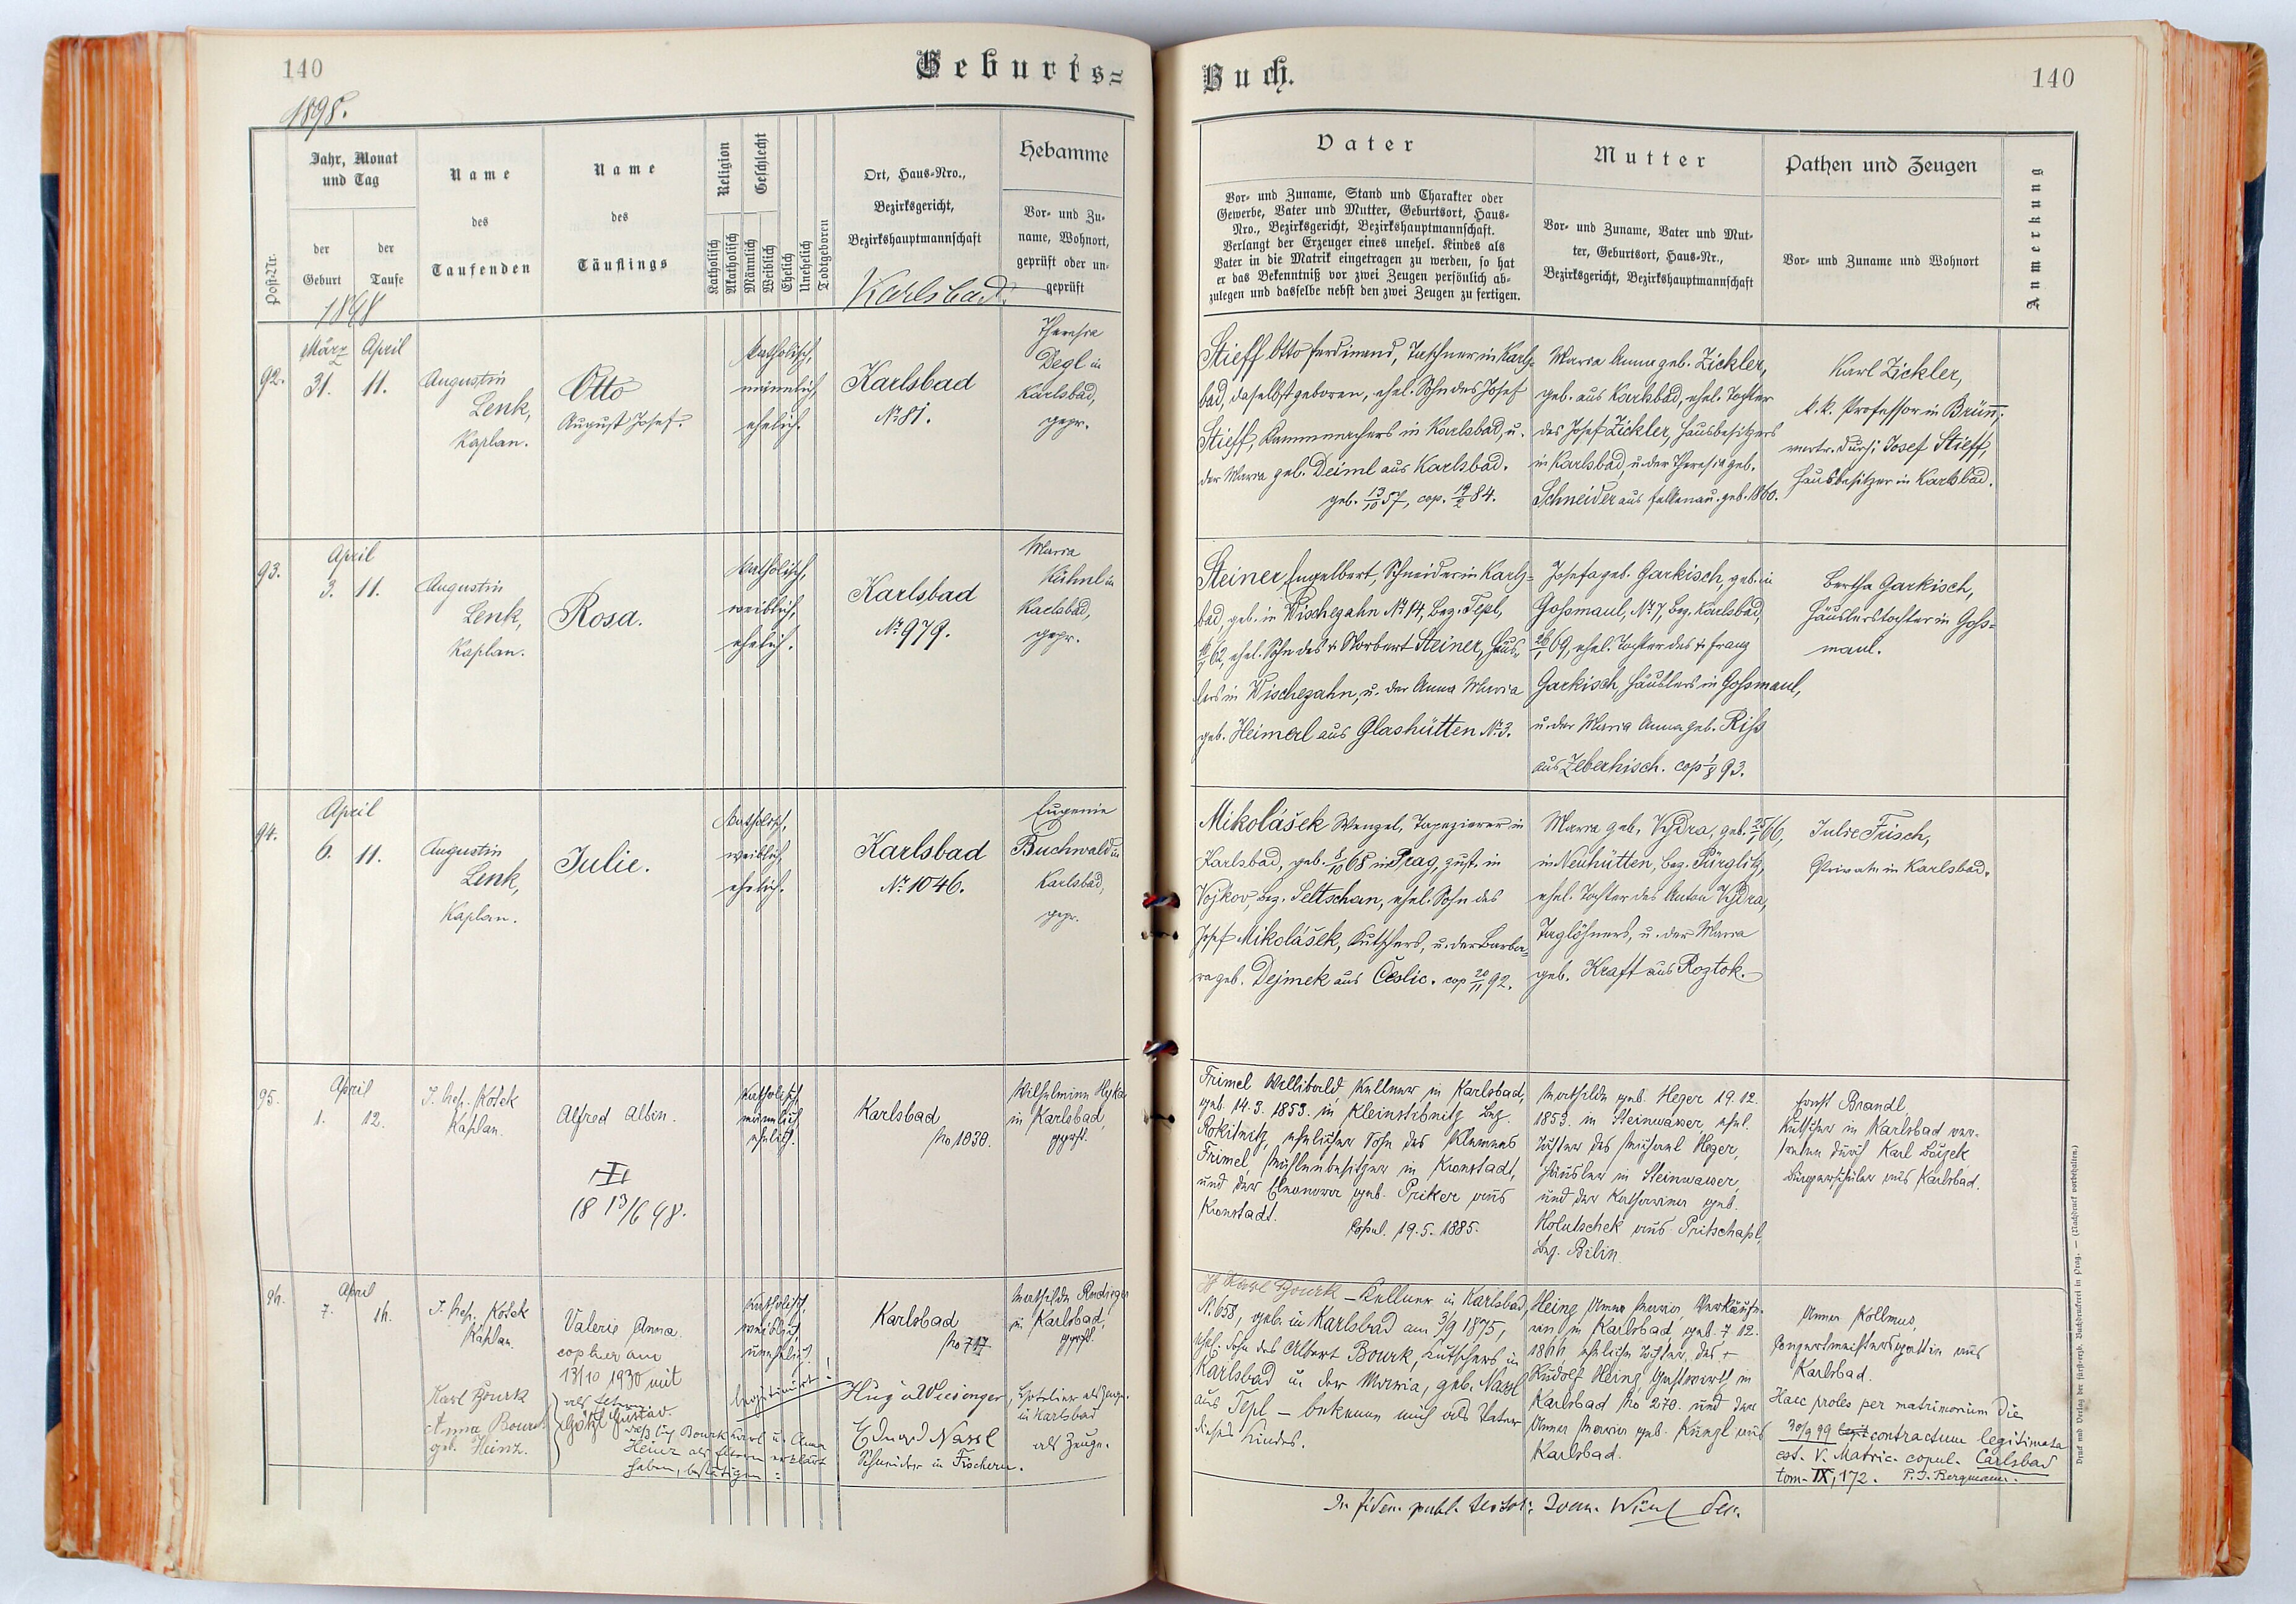 140
Geburts=
1898.
Post-Nr.
Jahr, Monat
und Tag
der
Geburt
der
Taufe
Name
des
Taufenden
Name
des
Täuflings
Religion
Geschlecht
Katholisch
Akatholisch
Männlich
Weiblich
Ehelich
Unehelich
Todtgeboren
Ort, Haus-Nro.,
Bezirksgericht,
Bezirkshauptmannschaft
Karlsbad.
Hebamme
Vor- und Zu-
name, Wohnort,
geprüft oder un-
geprüft
1898
92.
März
31.
April
11.
Augustin
Lenk,
Kaplan.
Otto
August Josef.
katholisch,
männlich,
ehelich.
Karlsbad
No 81.
Theresia
Degl in
Karlsbad,
gepr.
93.
April
3. 11.
Augustin
Lenk,
Kaplan.
Rosa.
katholisch,
weiblich,
ehelich.
Karlsbad
No 979.
Maria
Kühnl in
Karlsbad,
gepr.
94.
April
6. 11.
Augustin
Lenk,
Kaplan.
Julie.
katholisch,
weiblich,
ehelich.
Karlsbad
No 1046.
Eugenie
Buchwald in
Karlsbad,
gepr.
95.
April
1. 12.
J. Kosek
Kaplan.
Alfred Albin.
18 13/6 98.
Katholisch
männlich
ehelich.
Karlsbad
No 1030.
Wilhelmine
in Karlsbad,
geprft.
April
7.
J. Kosek
Kaplan
Valerie Anna.
13/10 1930 mit
Götzl Gustav.
Katholisch,
weiblich,
unehelich.
legitimirt!
Karlsbad
No
Mathilde
in Karlsbad,
geprft.
Karl Bourk
Anna Bourk
geb. Heinz.
als Eltern.
daß sich Bourk Karl u. Anna
Heinz als Eltern erklärt
haben, bestätigen:
Hugo Wiesinger,
in Karlsbad
Eduard Nassl
Schneider in Fischern.
als Zeuge.
Buch.
140
Vater
Vor- und Zuname, Stand und Charakter oder
Gewerbe, Vater und Mutter, Geburtsort, Haus-
Nro., Bezirksgericht, Bezirkshauptmannschaft.
Verlangt der Erzeuger eines unehel. Kindes als
Vater in die Matrik eingetragen zu werden, so hat
er das Bekenntniß vor zwei Zeugen persönlich ab-
zulegen und dasselbe nebst den zwei Zeugen zu fertigen.
Mutter
Vor- und Zuname, Vater und Mut-
ter, Geburtsort, Haus-Nr.,
Bezirksgericht, Bezirkshauptmannschaft
Pathen und Zeugen
Vor- und Zuname und Wohnort
Anmerkung
Stieff Otto Ferdinand, Taschner in Karls-
bad, daselbst geboren, ehel. Sohn des Josef
Stieff, Kammmachers in Karlsbad, u.
der Maria geb. Deiml aus Karlsbad.
geb. 13/10 57, cop. 19/2 84.
Maria Anna geb. Zickler,
geb. aus Karlsbad, ehel. Tochter
des Josef Zickler, Hausbesitzers
in Karlsbad, u. der Theresia geb.
Schneider aus Falkenau. geb. 1860.
Karl Zickler,
k.k. Professor in Brünn;
vertr. durch Josef Stieff,
Hausbesitzer in Karlsbad.
Steiner Engelbert, Schneider in Karls-
bad, geb. in Wischezahn No 14, Bez. Tepl,
62, ehel. Sohn des + Norbert Steiner, Häus-
lers in Wischezahn, u. der Anna Maria
geb. Heimerl aus Glashütten No 3.
Josefa geb. Garkisch, geb. in
Gossmaul, No 7, Bez. Karlsbad,
26/1 69, ehel. Tochter des + Franz
Garkisch, Häuslers in Gossmaul,
u. der Maria Anna geb. Riss
aus Zeberhisch. cop 1/8 93.
Bertha Garkisch,
Häuslerstochter in Goss-
maul.
Mikolášek Wenzel, Tapezierer in
Karlsbad, geb. 8/10 68 in Prag, zust. in
Vojkov, Bez. Seltschan, ehel. Sohn des
Josef Mikolášek, Kutschers, u. der Barba-
ra geb. Dejmek aus Česlic. cop 20/11 92.
Maria geb. Vydra, geb. 66,
in Neuhütten, Bez. Pürglitz,
ehel. Tochter des Anton Vydra,
Taglöhners, u. der Maria
geb. Kraft aus Roztok.
Julie Frisch,
Private in Karlsbad.
Frimel Willibald, Kellner in Karlsbad,
geb. 14.3. 1853. in Kleinstibnitz Bez.
Rokitnitz, ehelicher Sohn des Klemens
Frimel, Mühlenbesitzer in Kronstadt,
und der Eleonora geb. Priker aus
Kronstadt.
Copul. 19.5. 1885.
Mathilde geb. Heger 19.12.
1853. in Steinwasser, ehel.
Tochter des Michael Heger,
Häusler in Steinwasser,
und der Katharina geb.
Holutschek aus Pritschapl,
Bez. Bilin.
Ernst Brandl,
Kutscher in Karlsbad ver-
treten durch Karl
Bürgerschüler aus Karlsbad.
Karl Bourk – Kellner in Karlsbad,
N. 658, geb. in Karlsbad am 3/9 1875,
ehel. Sohn des Albert Bourk, Kutschers in
Karlsbad u. der Maria, geb. Nassl
aus Tepl – bekenne mich als Vater
dieses Kindes.
Heinz Anna Maria, Verkäufe-
rin in Karlsbad, geb. 7.12.
eheliche Tochter des +
Rudolf Heinz Gastwirth in
Karlsbad No 270. und der
Anna Maria geb. Küngl aus
Karlsbad.
Anna Kollmus,
Conzertmeistersgattin aus
Karlsbad.
Haec proles per matrimonium die
30/9 99 contractum legitimata
est. V. Matric. copul. Carlsbad
tom. IX, 172. P. J. Bergmann.
In fidem publ. Joan.
Druck und Verlag der fürsterzb. Buchdruckerei in Prag. — (Nachdruck vorbehalten.)